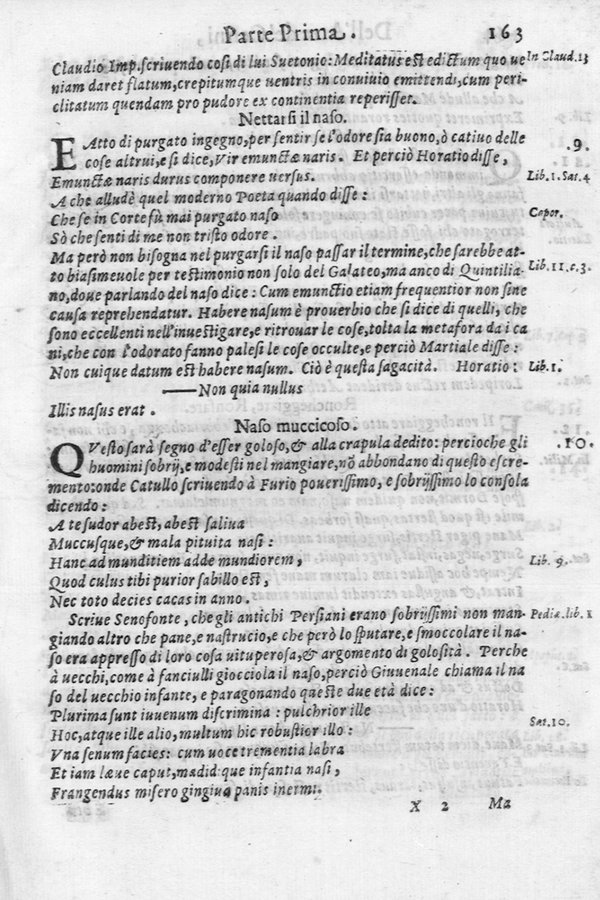 Parte Prima. 163
Claudio Imp. scriuendo cosi di lui Suetonio: Meditatus est edictum quo ue In Claud. 13
niam daret flatum, crepitumque uentris in conuiuio emittendi, cum peri-
clitatum quendam pro pudore ex continentia reperisset.
Nettarsi il naso.
E Atto di purgato ingegno, per sentir se l'odore sia buono, ò catiuo delle 9.
cose altrui, e si dice, Vir emunctæ naris. Et perciò Horatio disse,
Emunctæ naris durus componere uersus. Lib. 1. Sat. 4
A che alludè quel moderno Poeta quando disse:
Che se in Corte fù mai purgato naso Capor.
Sò che senti di me non tristo odore.
Ma però non bisogna nel purgarsi il naso passar il termine, che sarebbe at-
to biasimeuole per testimonio non solo del Galateo, ma anco di Quintilia- Lib. 11. c. 3.
no, doue parlando del naso dice: Cum emunctio etiam frequentior non sine
causa reprehendatur. Habere nasum è prouerbio che si dice di quelli, che
sono eccellenti nell'inuestigare, e ritrouar le cose, tolta la metafora da i ca
ni, che con l'odorato fanno palesi le cose occulte, e perciò Martiale disse:
Non cuique datum est habere nasum. Ciò è questa sagacità. Horatio: Lib. 1.
——Non quia nullus
Illis nasus erat.
Naso muccicoso.
QVesto sarà segno d'esser goloso, & alla crapula dedito: percioche gli 10.
huomini sobrij, e modesti nel mangiare, nõ abbondano di questo escre-
mento: onde Catullo scriuendo à Furio pouerissimo, e sobrijssimo lo consola
dicendo:
A te sudor abest, abest saliua
Muccusque, & mala pituita nasi:
Hanc ad munditiem adde mundiorem, Lib. 9.
Quod culus tibi purior sabillo est,
Nec toto decies cacas in anno.
Scriue Senofonte, che gli antichi Persiani erano sobrijssimi non man- Pediæ. lib. 1
giando altro che pane, e nastrucio, e che però lo sputare, e smoccolare il na-
so era appresso di loro cosa uituperosa, & argomento di golosità. Perche
à uecchi, come à fanciulli giocciola il naso, perciò Giuuenale chiama il na
so del uecchio infante, e paragonando queste due età dice:
Plurima sunt iuuenum discrimina: pulchrior ille
Hoc, atque ille alio, multum hic robustior illo: Sat. 10.
Vna senum facies: cum uoce trementia labra
Et iam læue caput, madidique infantia nasi,
Frangendus misero gingiua panis inermi.
X 2 Ma